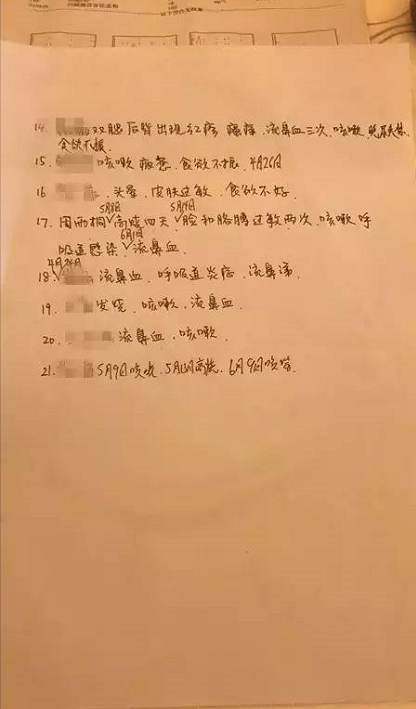 14. 双腿后背出现红疹 瘙痒、流鼻血三次、咳嗽、
食欲不振
15. 咳嗽 疲惫、食欲不振、4月26日
16. 、头晕、皮肤过敏、食欲不好。
5月8日 5月14日
17. 周雨桐√高烧四天√脸和胳膊过敏两次、咳嗽 呼
6月1日
吸道感染√流鼻血
4月26日
18. √ 流鼻血、呼吸道炎症、流鼻涕
19. 发烧、咳嗽、流鼻血、
20. 流鼻血、咳嗽、
21. 5月9日咳嗽、高烧、6月9日咳嗽、